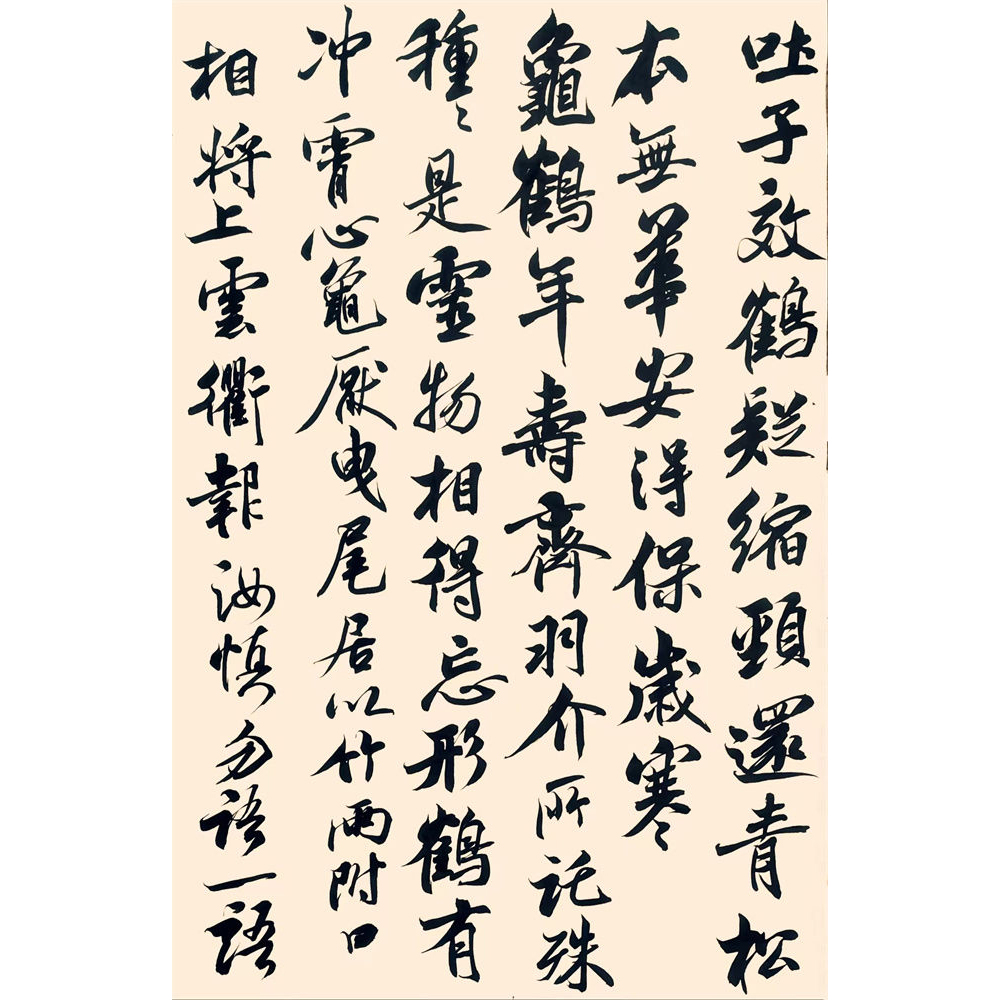 吐子效鶴疑縮頸還青松
本無華安得保歲寒
龜鶴年壽齊羽介所託殊
種〻是靈物相得忘形鶴有
冲霄心龜厭曳尾居以竹兩附口
相將上雲衢報汝慎勿語一語